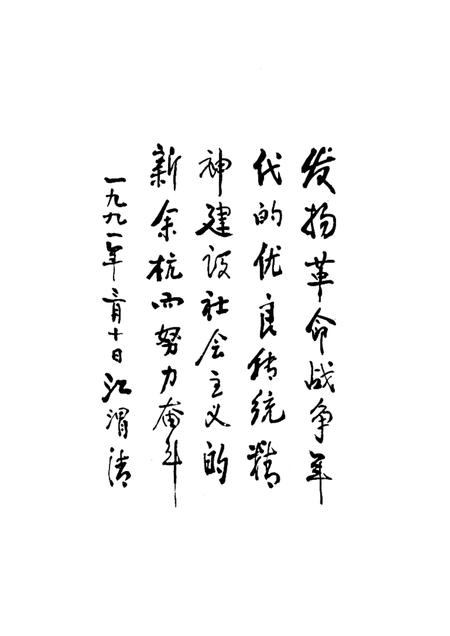 发扬革命战争年
代的优良传统精
神建设社会主义的
新余杭而努力奋斗
一九九一年三月十日江渭清